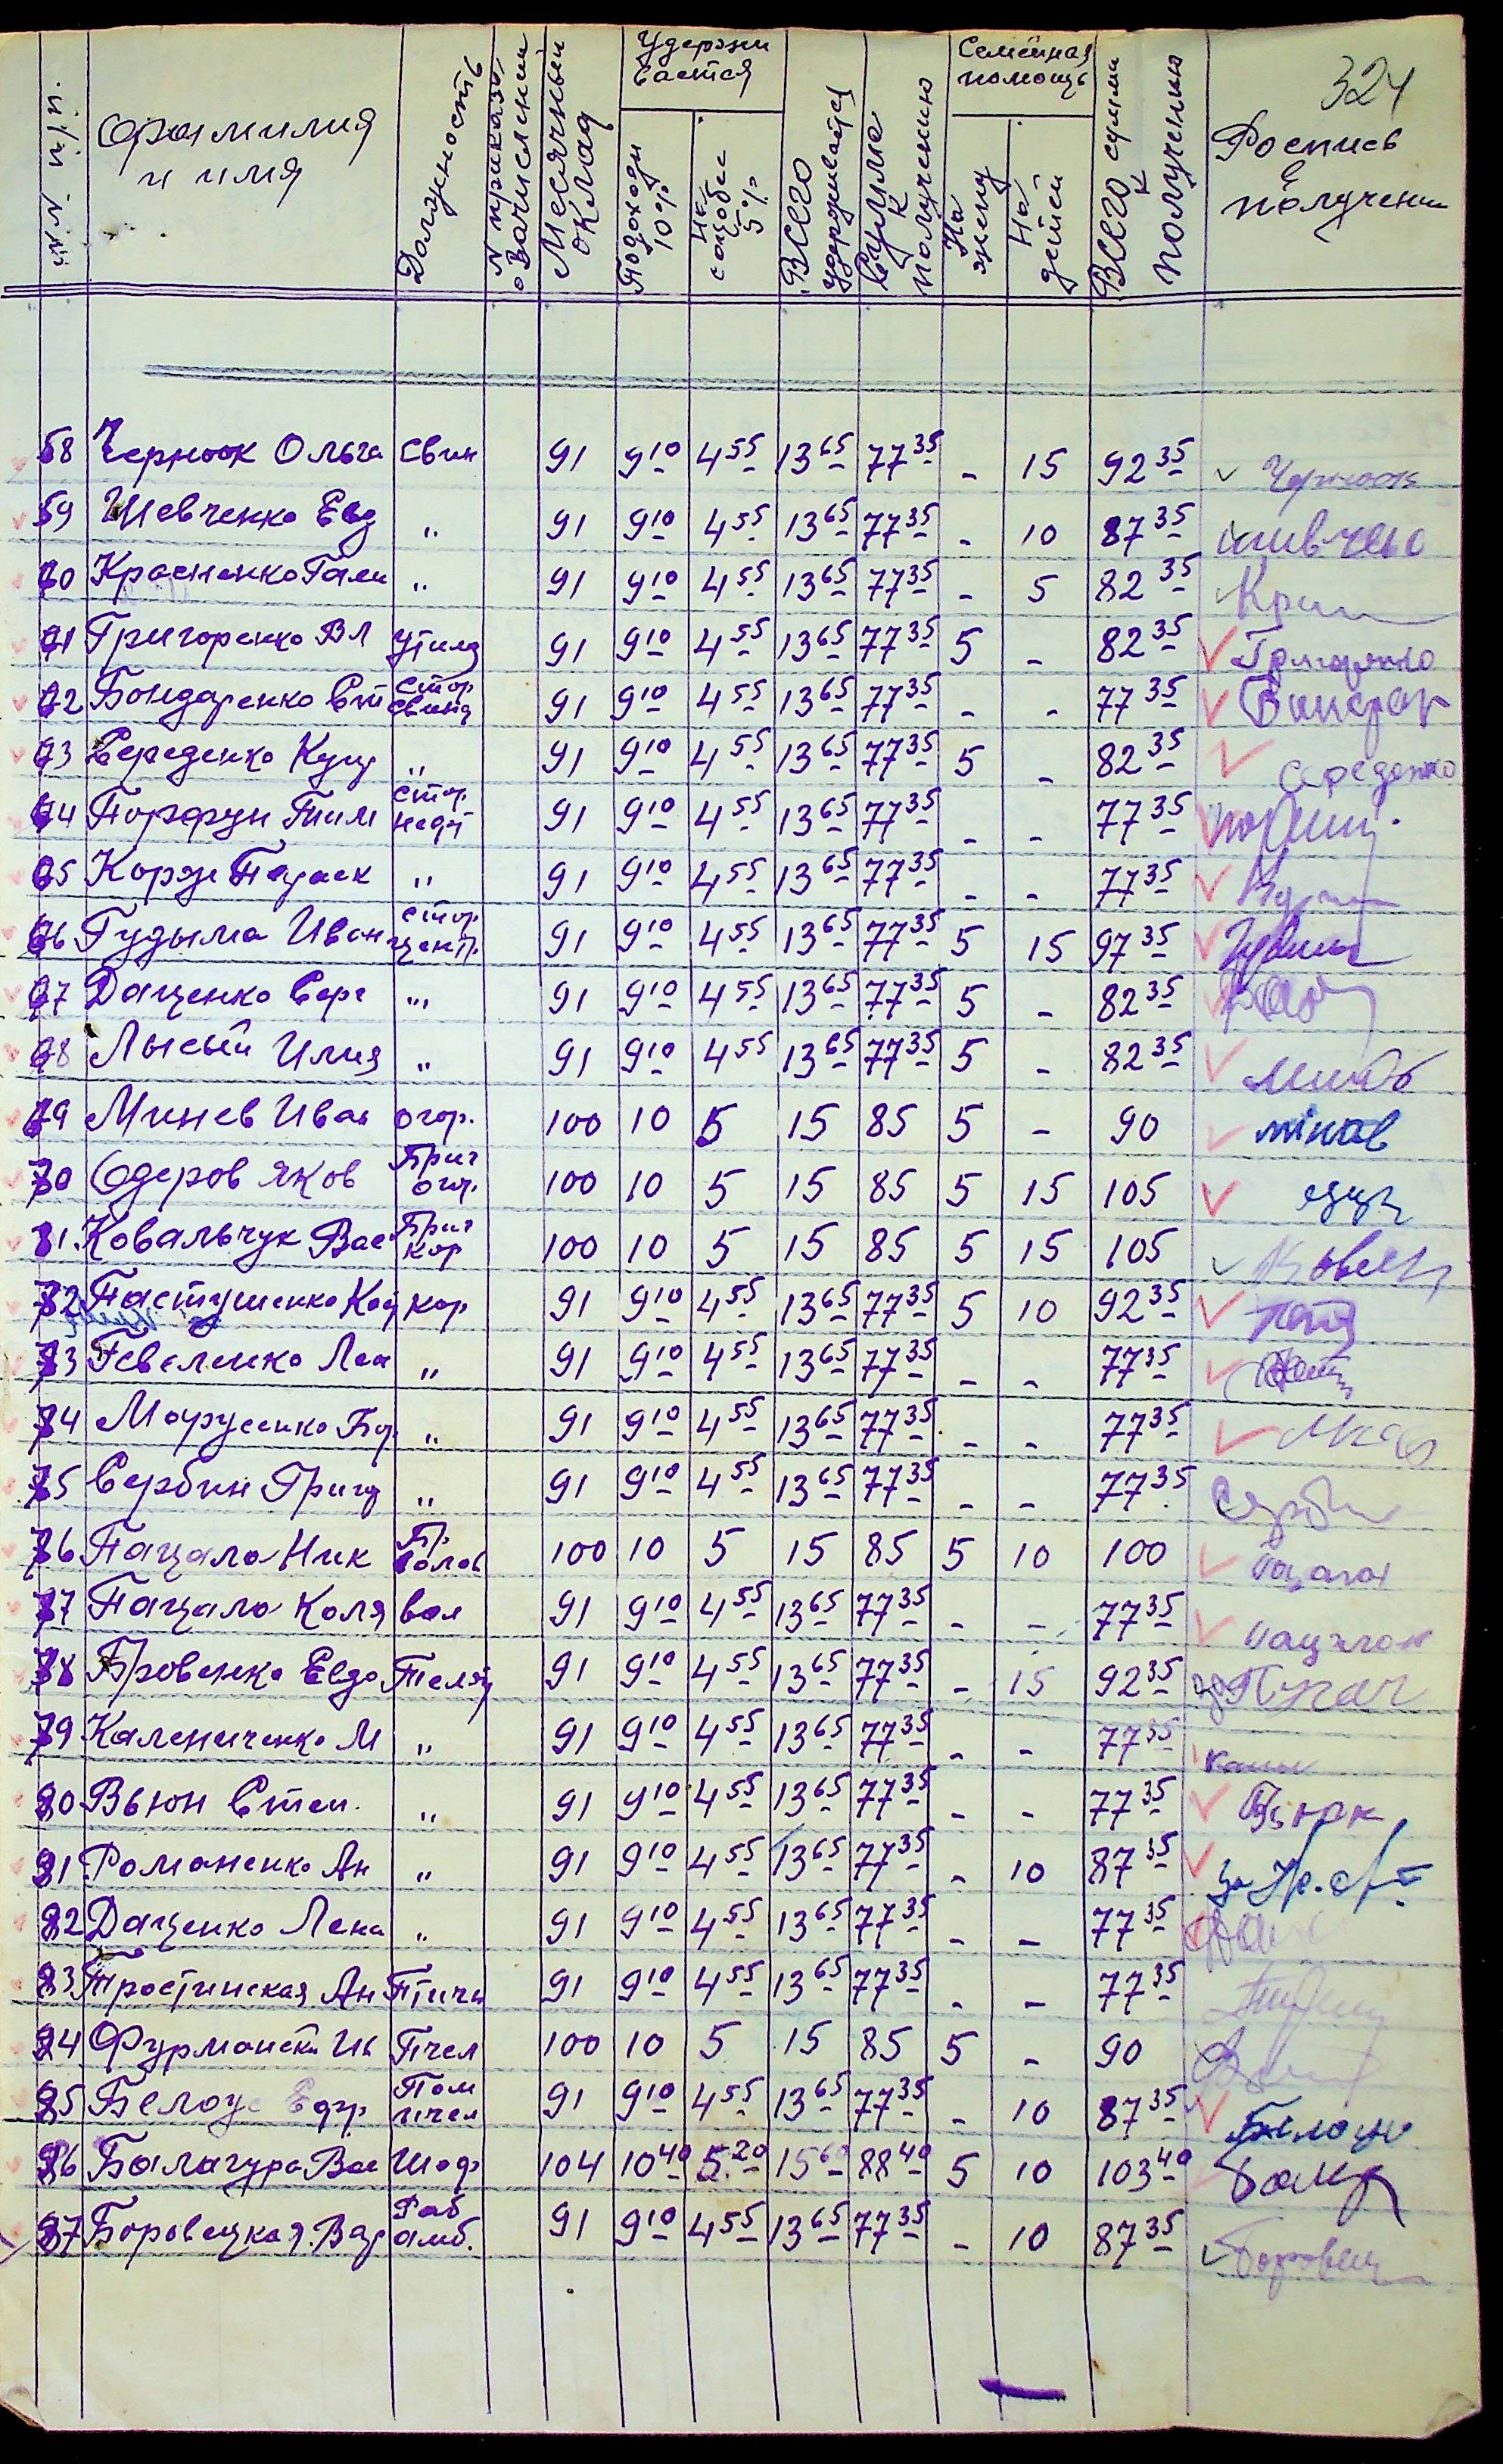 324
№№ п/п. Фамилия и имя Должность N приказа о зачислении Месячный оклад Удержи вается Подоходн 10% На соцобес 5% Всего удерживается Сумма к получению Семейная помощь На жену На детей Всего суммы к получению Роспись в получении
58 Черноок Ольга Свин 91 9 10 4 55 13 65 77 35 - 15 92 35 Черноок
59 Шевченко Евд " 91 9 10 4 55 13 65 77 35 - 10 87 35
60 Красненко Гали " 91 9 10 4 55 13 65 77 35 - 5 82 35
61 Григоренко Вл 91 9 10 4 55 13 65 77 35 5 - 82 35
62 Бондаренко Ст Стор свина 91 9 10 4 55 13 65 77 35 - - 77 35
63 Середенко Кузь " 91 9 10 4 55 13 65 77 35 5 - 82 35 Середенко
64 Порфун Тим стор. 91 9 10 4 55 13 65 77 35 - - 77 35
65 Корж Параск " 91 9 10 4 55 13 65 77 35 - - 77 35
66 Гудыма Иван стор. центр. 91 9 10 4 55 13 65 77 35 5 15 97 35
67 Даценко Серг " 91 9 10 4 55 13 65 77 35 5 - 82 35
68 Лысый Илия " 91 9 10 4 55 13 65 77 35 5 - 82 35
69 Минев Иван огор. 100 10 5 15 85 5 - 90
70 Одеров Яков Бриг огор. 100 10 5 15 85 5 15 105
71 Ковальчук Вас Бриг Кор 100 10 5 15 85 5 15 105
72 Пастушенко кор 91 9 10 4 55 13 65 77 35 5 10 92 35
73 Гевеленко Леа " 91 9 10 4 55 13 65 77 35 - - 77 35
74 Марусенко " 91 9 10 4 55 13 65 77 35 - - 77 35
75 Сербин Григ " 91 9 10 4 55 13 65 77 35 - - 77 35
76 Пацало Ник Бр. волов 100 10 5 15 85 5 10 100
77 Пацало Коля вол 91 9 10 4 55 13 65 77 35 - - 77 35
78 Бровенко Евдо Телят 91 9 10 4 55 13 65 77 35 - 15 92 35
79 Калениченко М " 91 9 10 4 55 13 65 77 35 - - 77 35
80 Вьюн Степ. " 91 9 10 4 55 13 65 77 35 - - 77 35
81 Романенко Ан " 91 9 10 4 55 13 65 77 35 - 10 87 35
82 Даценко Лена " 91 9 10 4 55 13 65 77 35 - - 77 35
83 Тростинская Ан Птичн 91 9 10 4 55 13 65 77 35 - - 77 35
84 Фурманск Ив Пчел 100 10 5 15 85 5 - 90
85 Белоус Пом пчел 91 9 10 4 55 13 65 77 35 - 10 87 35
86 Балагура Вас Шоф 104 10 40 5 20 15 60 88 40 5 10 103 40
87 Боровецкая Вар Раб амб. 91 9 10 4 55 13 65 77 35 - 10 87 35 Боровец